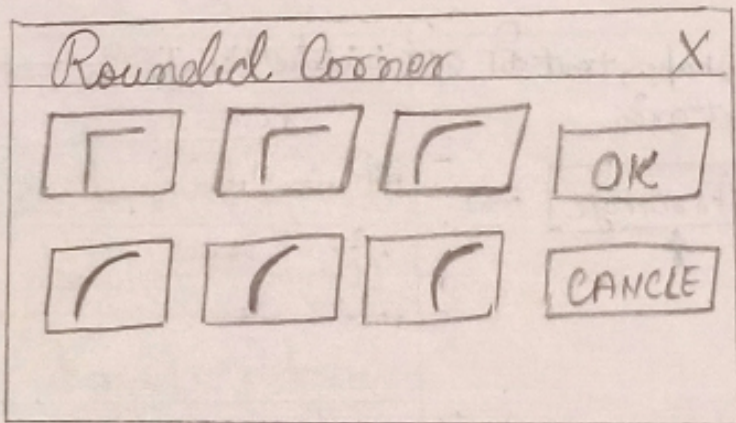 Rounded Corner X
OK
CANCLE